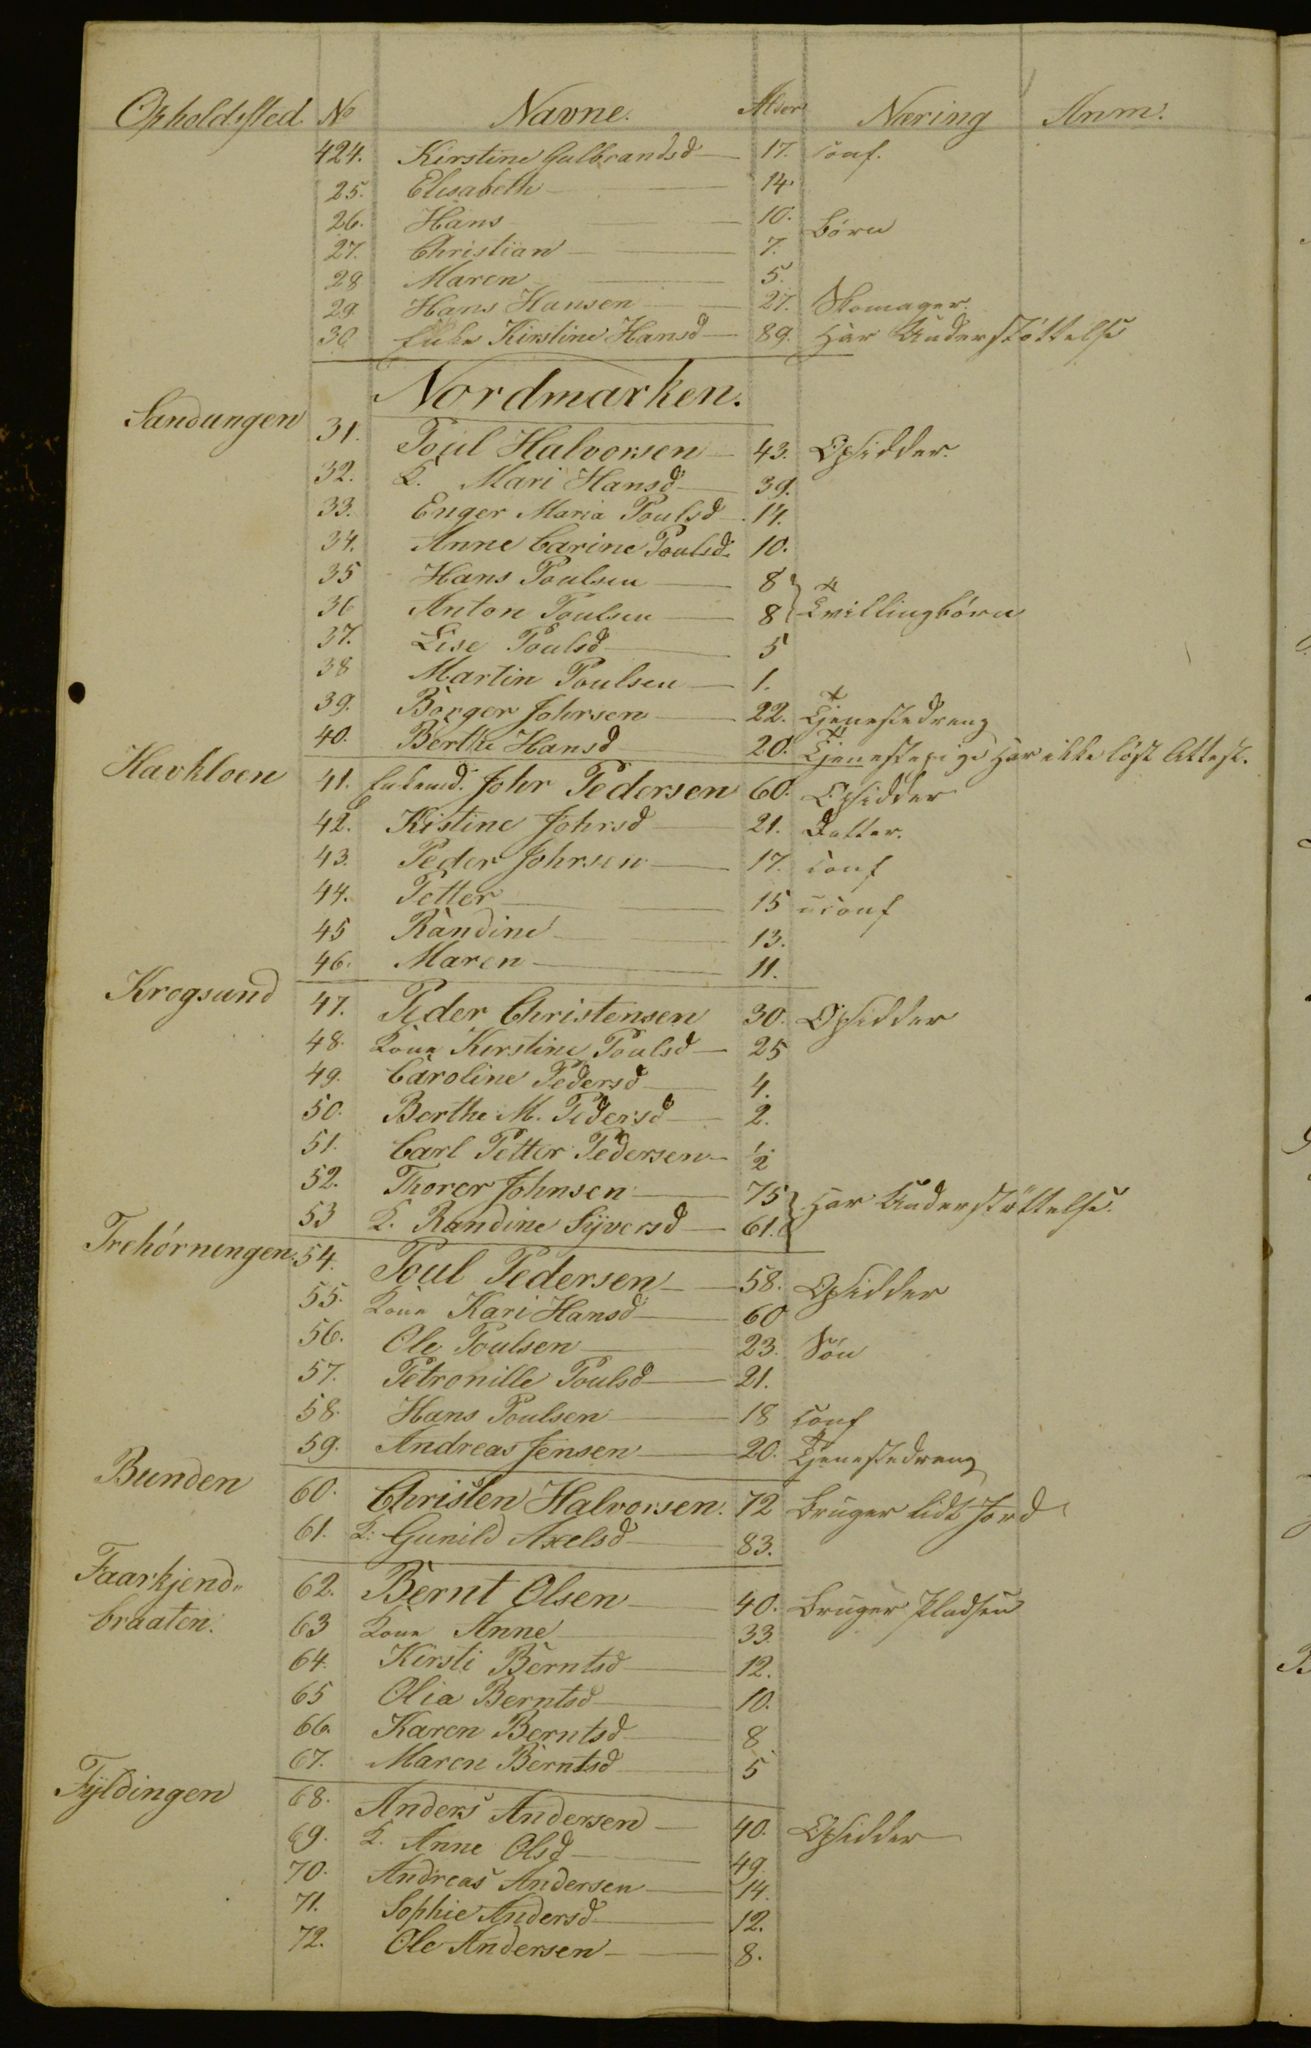 Opholdsted. No Navne. Alder Næring Anm:
424. Kirstine Gulbrandsd 17. Conf.
25. Elisabeth 14
26. Hans 10. Børn
27. Christian 7.
28 Maren 5.
29 Hans Hansen 27. Skomager.
30 Enke Kirstine Hansd 89. Har Understøttelse
Nordmarken.
Sandungen 31. Poul Halvorsen 43. Opsidder.
32. K. Mari Hansd 39.
33. Enger Maria Poulsd 14.
34. Anne Carine Poulsd 10.
35 Hans Poulsen 8
36 Anton Poulsen 8 Tvillingbørn
37. Lise Poulsd 5
38 Martin Poulsen 1.
39. Børger Johrsen 22. Tjenestedreng
40. Berthe Hansd 20. Tjenestepige har ikke løst Attest.
Havkloen 41. Enkemd. Johr Pedersen 60. Opsidder
42. Kistine Johrsd 21. Datter.
43. Peder Johrsen 17. Conf
44. Petter 15 uconf
45 Randine 13.
46. Maren 11.
Krogsund 47. Peder Christensen 30. Opsidder
48. Kone Kirstine Poulsd 25
49. Caroline Pedersd 4.
50. Berthe M. Pedersd 2.
51. Carl Petter Pedersen ½
52. Thorer Johnsen 75
53 K. Randine Syversd 61. Har Understøttelse.
Trehørningen 54. Poul Pedersen 58. Opsidder
55. Kone Kari Hansd 60
56. Ole Poulsen 23. Søn
57. Petronille Poulsd 21.
58. Hans Poulsen 18 Conf
59. Andreas Jensen 20. Tjenestedreng
Bunden 60. Christen Halvorsen. 72 Bruger lidt Jord
61. K: Gunild Axelsd 83.
Faarkjend- 62. Bernt Olsen 40. Bruger Pladsen
braaten. 63 Kone Anne 33.
64. Kersti Berntsd 12.
65 Olia Berntsd 10.
66. Karen Berntsd 8
67. Maren Berntsd 5
Fyldingen 68. Anders Andersen 40. Opsidder
69. K. Anne Olsd 49.
70. Andreas Andersen 14.
71. Sophie Andersd 12.
72. Ole Andersen 8.